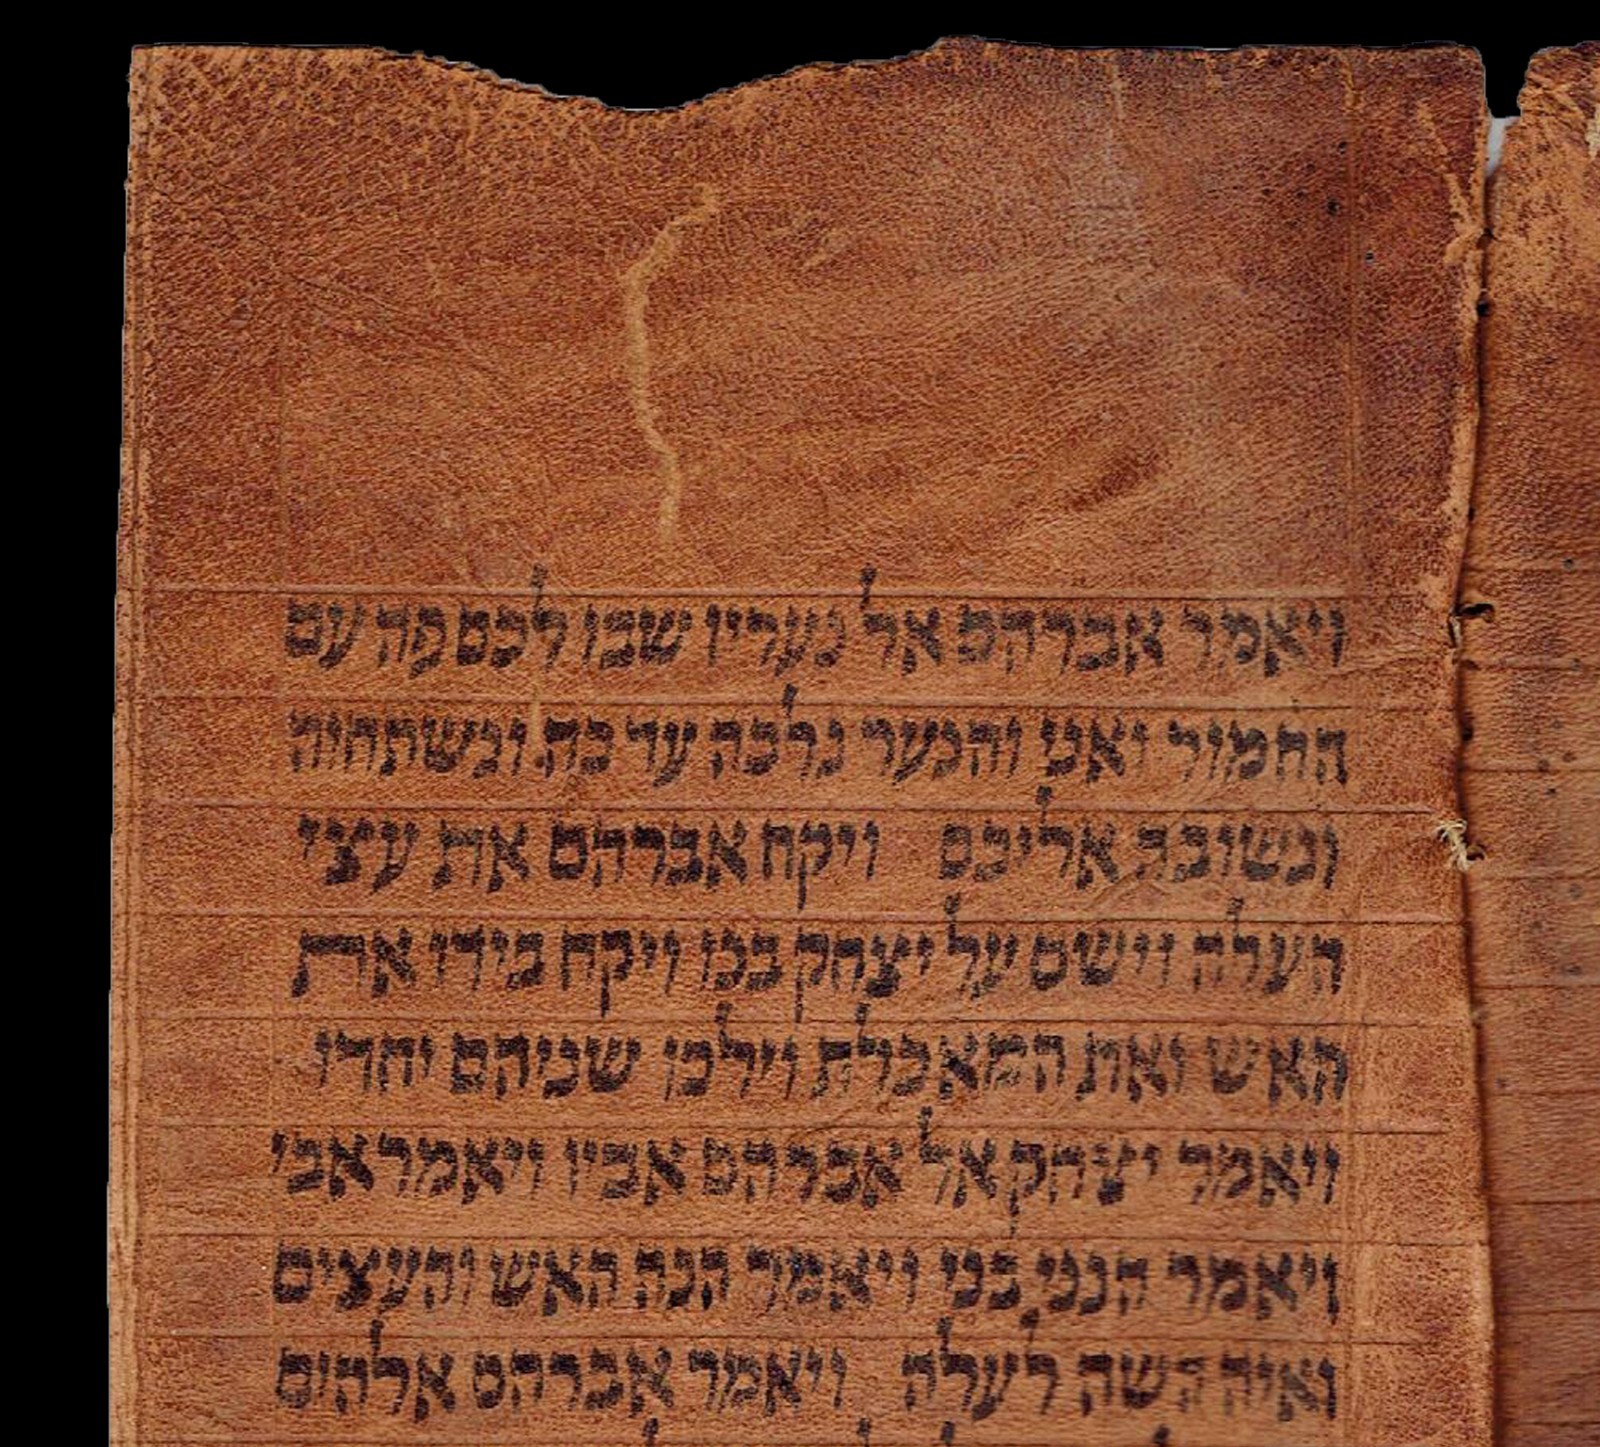 ויאמר אברהם אל נעריו שבו לכם פה עם
החמור ואני והנער נלכה עד כה ונשתחוה
ונשובה אליכם ויקח אברהם את עצי
העלה וישם על יצחק בנו ויקח בידו את
האש ואת המאכלת וילכו שניהם יחדו
ויאמר יצחק אל אברהם אביו ויאמר אבי
ויאמר הנני בני ויאמר הנה האש והעצים
ואיה השה לעלה ויאמר אברהם אלהים